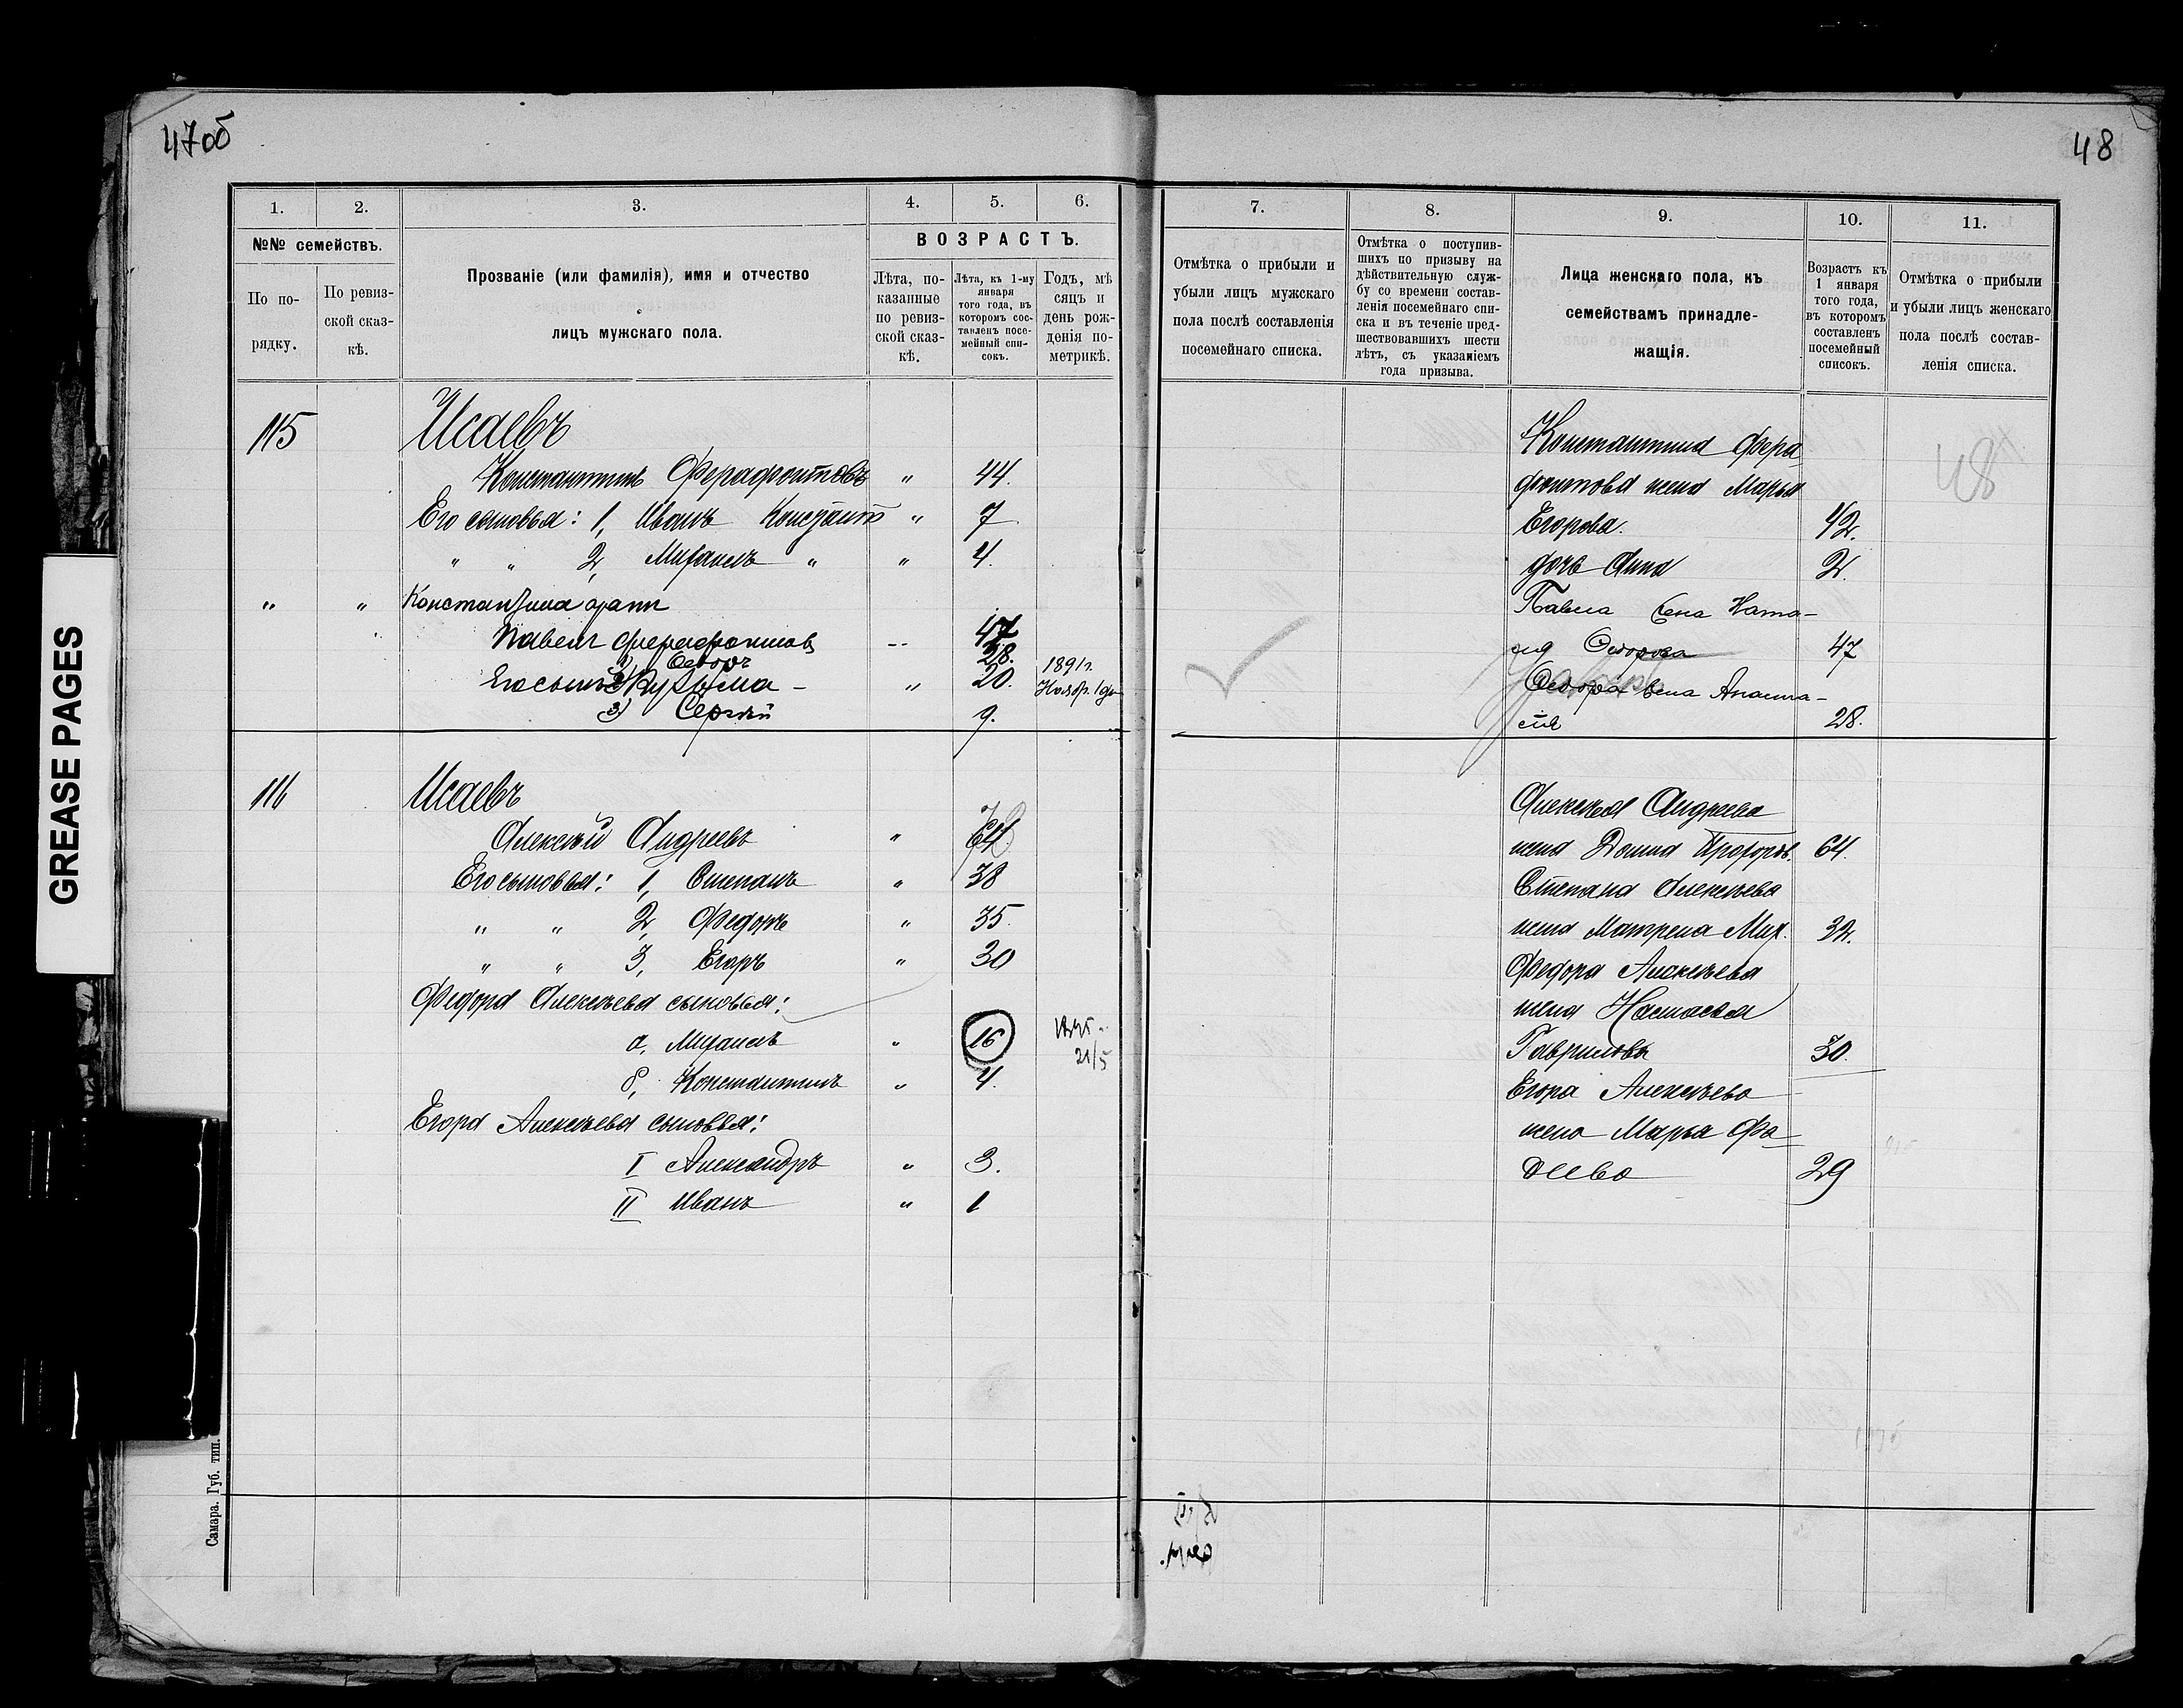 47об
48
1. 2. 3. 4. 5. 6.
№№ семействъ.
По по-
рядку.
По ревиз-
ской сказ-
кѣ.
Прозваніе (или фамилія), имя и отчество
лицъ мужскаго пола.
ВОЗРАСТЪ.
Лѣта, по-
казанные
по ревиз-
ской сказ-
кѣ.
Лѣта, къ 1-му
января
того года, въ
которомъ сос-
тавленъ посе-
мейный спи-
сокъ.
Годъ, мѣ
сяцъ и
день рож-
денія по-
метрикѣ.
115 Исаевъ
Константинъ Ферафонтовъ " 44.
Его сыновья: 1, Иванъ Констант " 7
" " 2, Михаилъ " " 4.
" " Константина братъ
Павелъ Ферафонтовъ -- 47
1) Ѳедоръ 28.
Его сынъ 2) Кузьма - " 20. 1891 г. Ноябр. 1 дн
3) Сергѣй 9.
116 Исаевъ
Алексѣй Андреевъ "
Его сыновья: 1, Степанъ " 38
" " 2, Федоръ " 35.
" " 3, Егоръ " 30
Федора Алексѣева сыновья:
а, Михаилъ " 16 21/5
б, Константинъ " 4.
Егора Алексѣева сыновья:
I Александръ " 3.
II Иванъ " 1
Самара. Губ. тип.
7. 8. 9. 10. 11.
Отмѣтка о прибыли и
убыли лицъ мужскаго
пола послѣ составленія
посемейнаго списка.
Отмѣтка о поступив-
шихъ по призыву на
дѣйствительную служ-
бу со времени состав-
ленія посемейнаго спи-
ска и въ теченіе пред-
шествовавшихъ шести
лѣтъ, съ указаніемъ
года призыва.
Лица женскаго пола, къ
семействамъ принадле-
жащія.
Возрастъ къ
1 января
того года,
въ которомъ
составленъ
посемейный
списокъ.
Отмѣтка о прибыли
и убыли лицъ женскаго
пола послѣ состав-
ленія списка.
Константина Фера
фонтова жена Марья
Егорова. 42.
дочь Анна 2.
48
Павла жена Ната-
лія 47
Ѳедора жена Анаста-
сія 28.
Алексѣя Андреева
жена Домна Прохоров. 64.
Степана Алексѣева
жена Матрена Мих. 32.
Федора Алексѣева
жена Настасья
Гаврилова 30.
Егора Алексѣева
жена Марья Фа
деева 29
GREASE PAGES